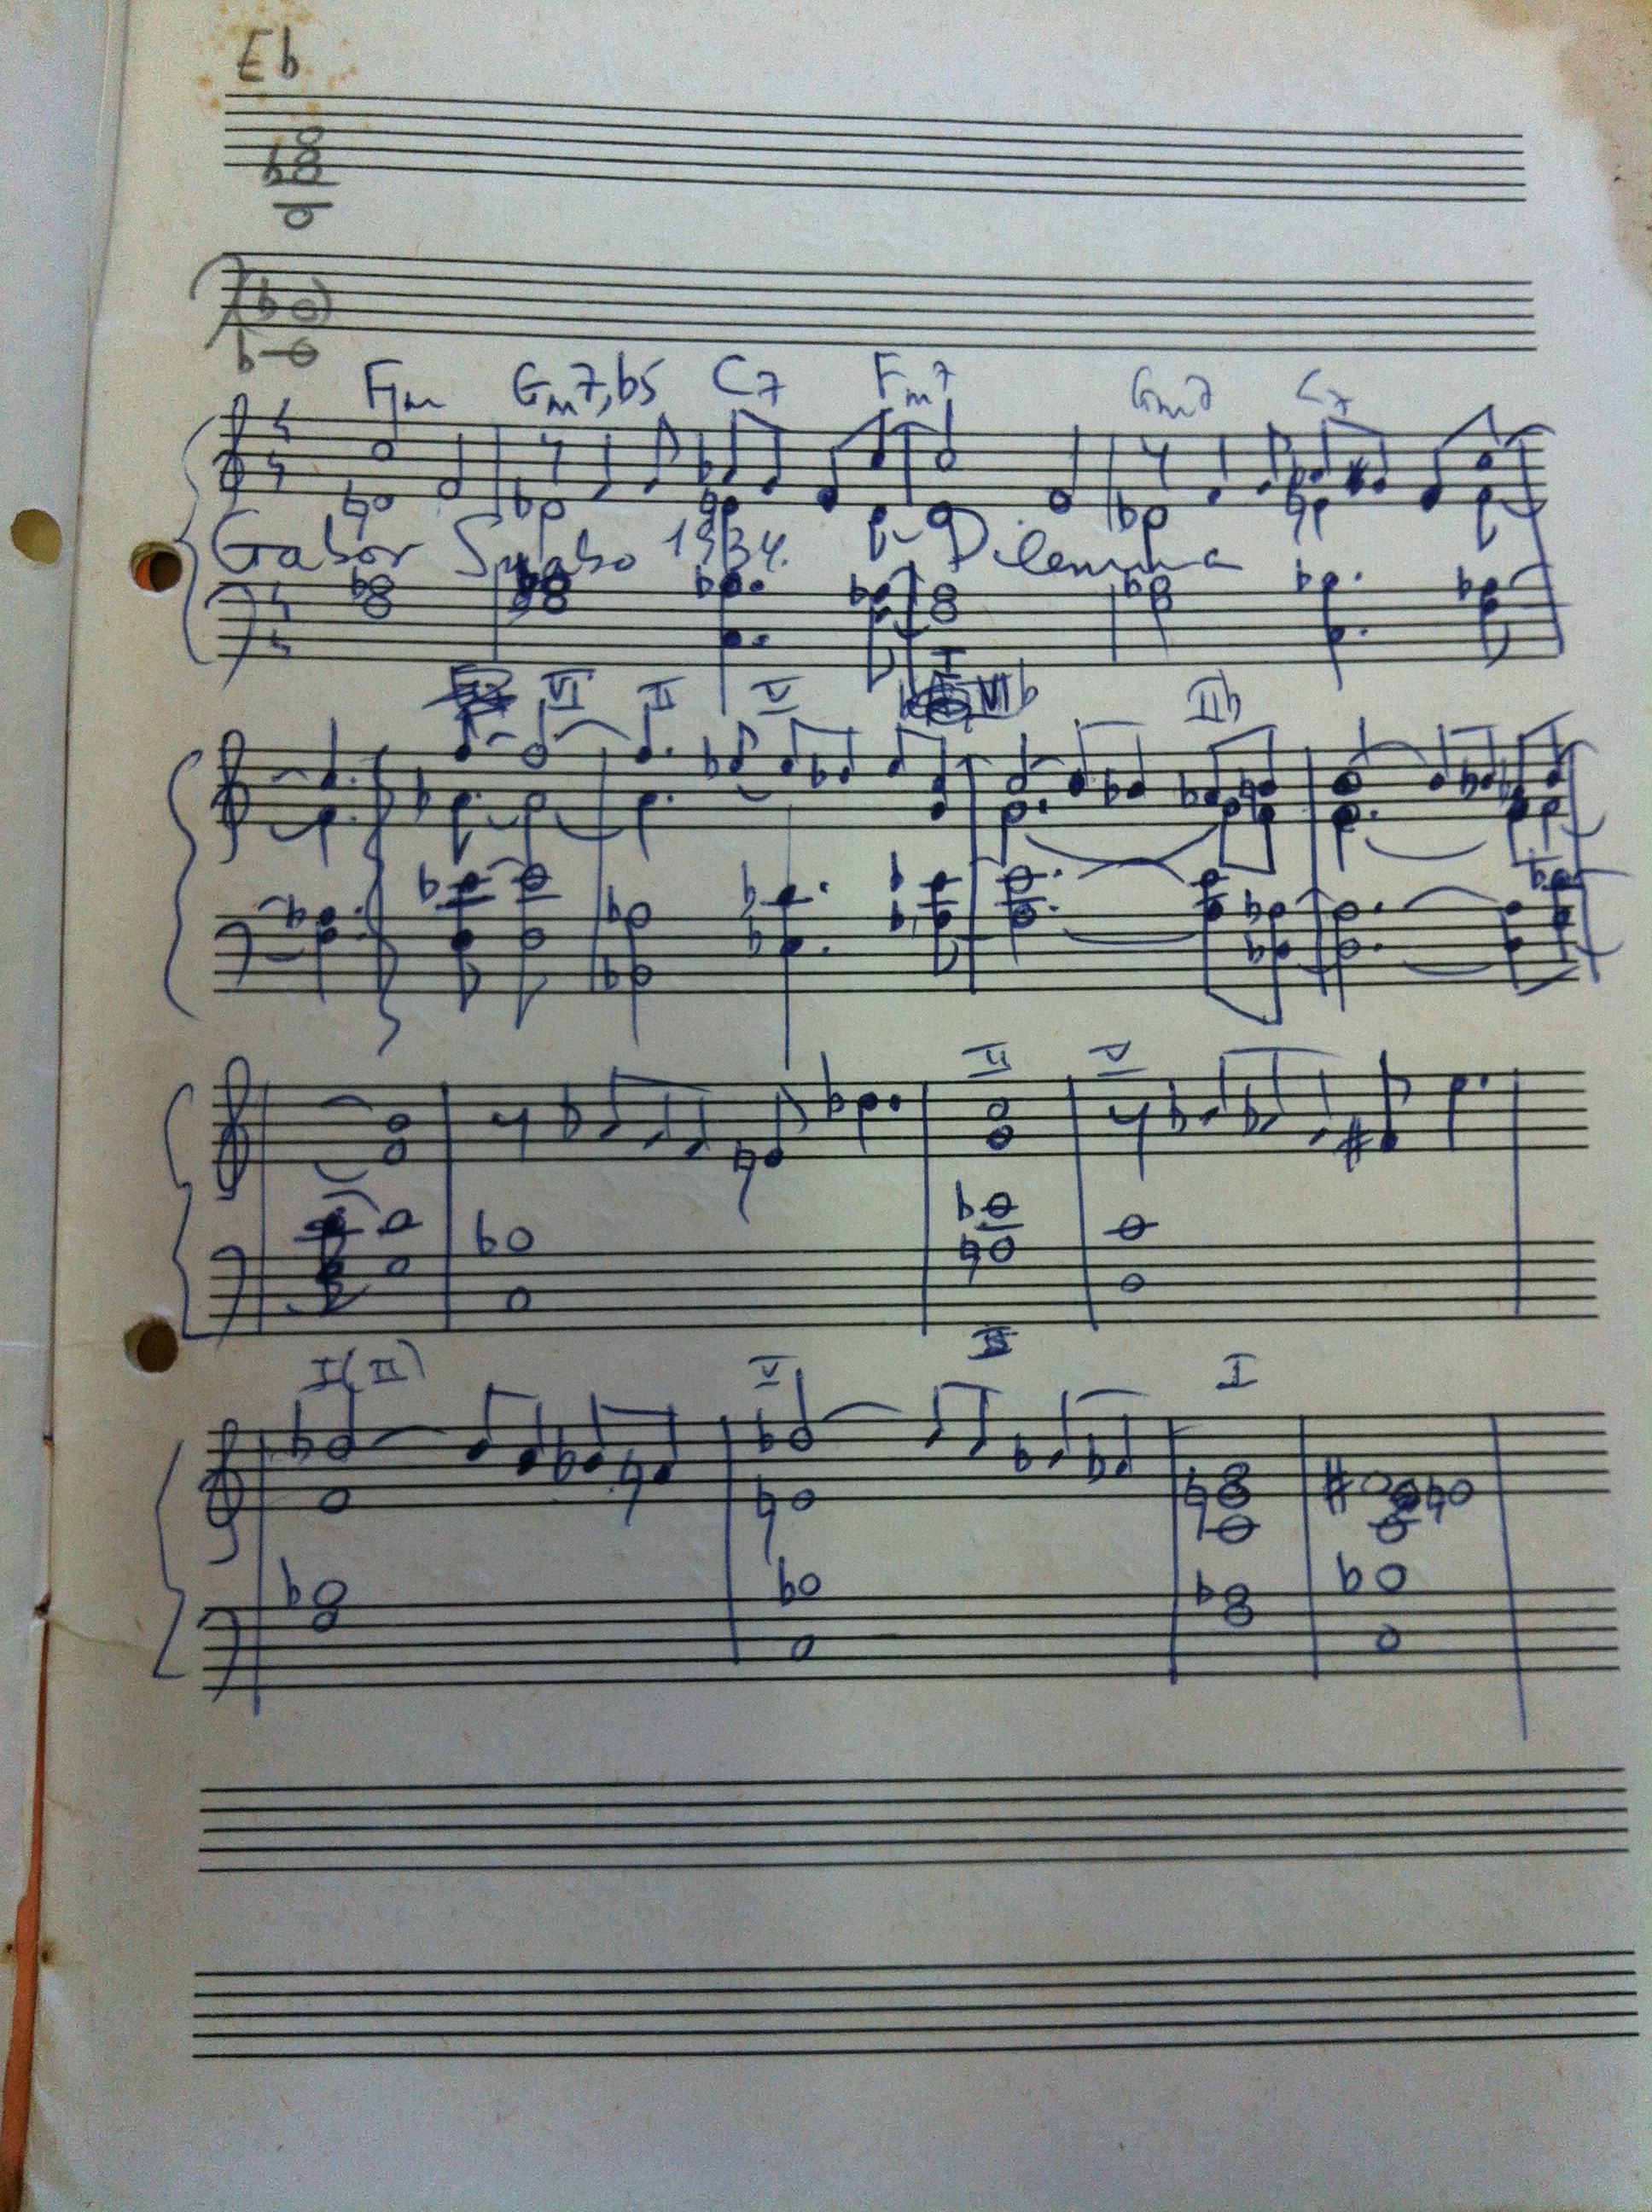 Eb
Fm Gm7,b5 C7 Fm7 Gm7 C7
Gabor Szabo 1934. Dilemma
I
VI II V VIb IIb
II V
I(II) V I